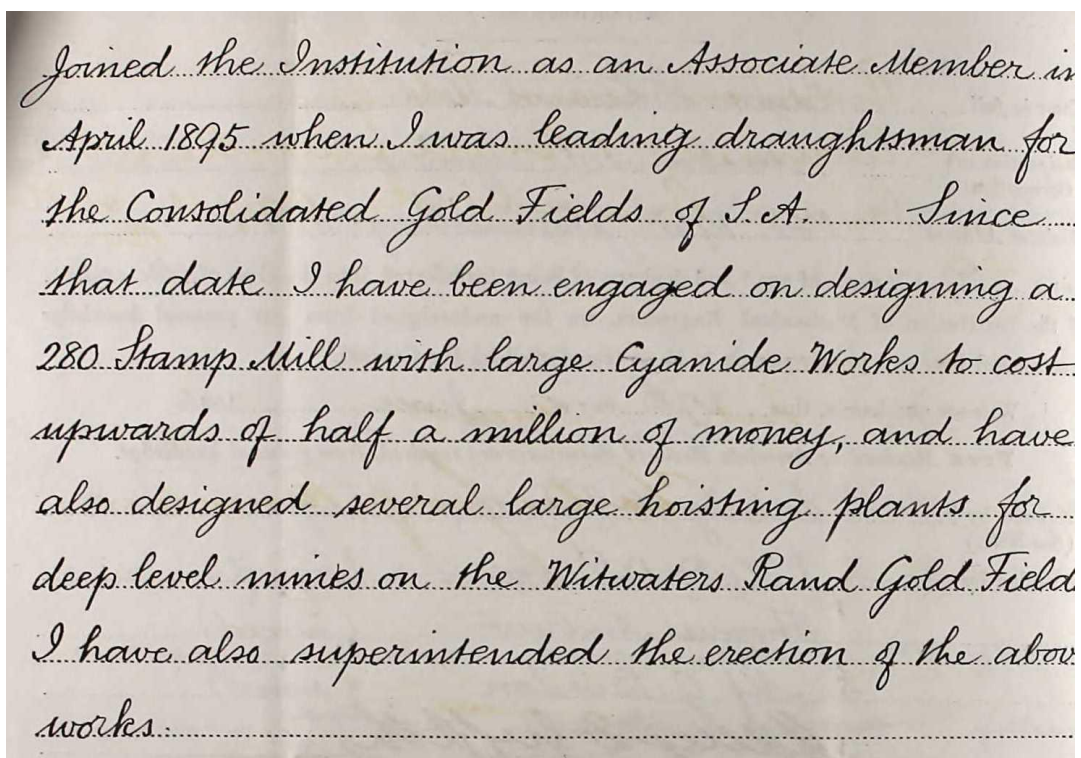 Joined the Institution as an Associate Member in
April 1895 when I was leading draughtsman for
the Consolidated Gold Fields of S.A. Since
that date I have been engaged on designing a
280 Stamp Mill with large Cyanide Works to cost
upwards of half a million of money, and have
also designed several large hoisting plants for
deep level mines on the Witwaters Rand Gold Field
I have also superintended the erection of the abov
works.